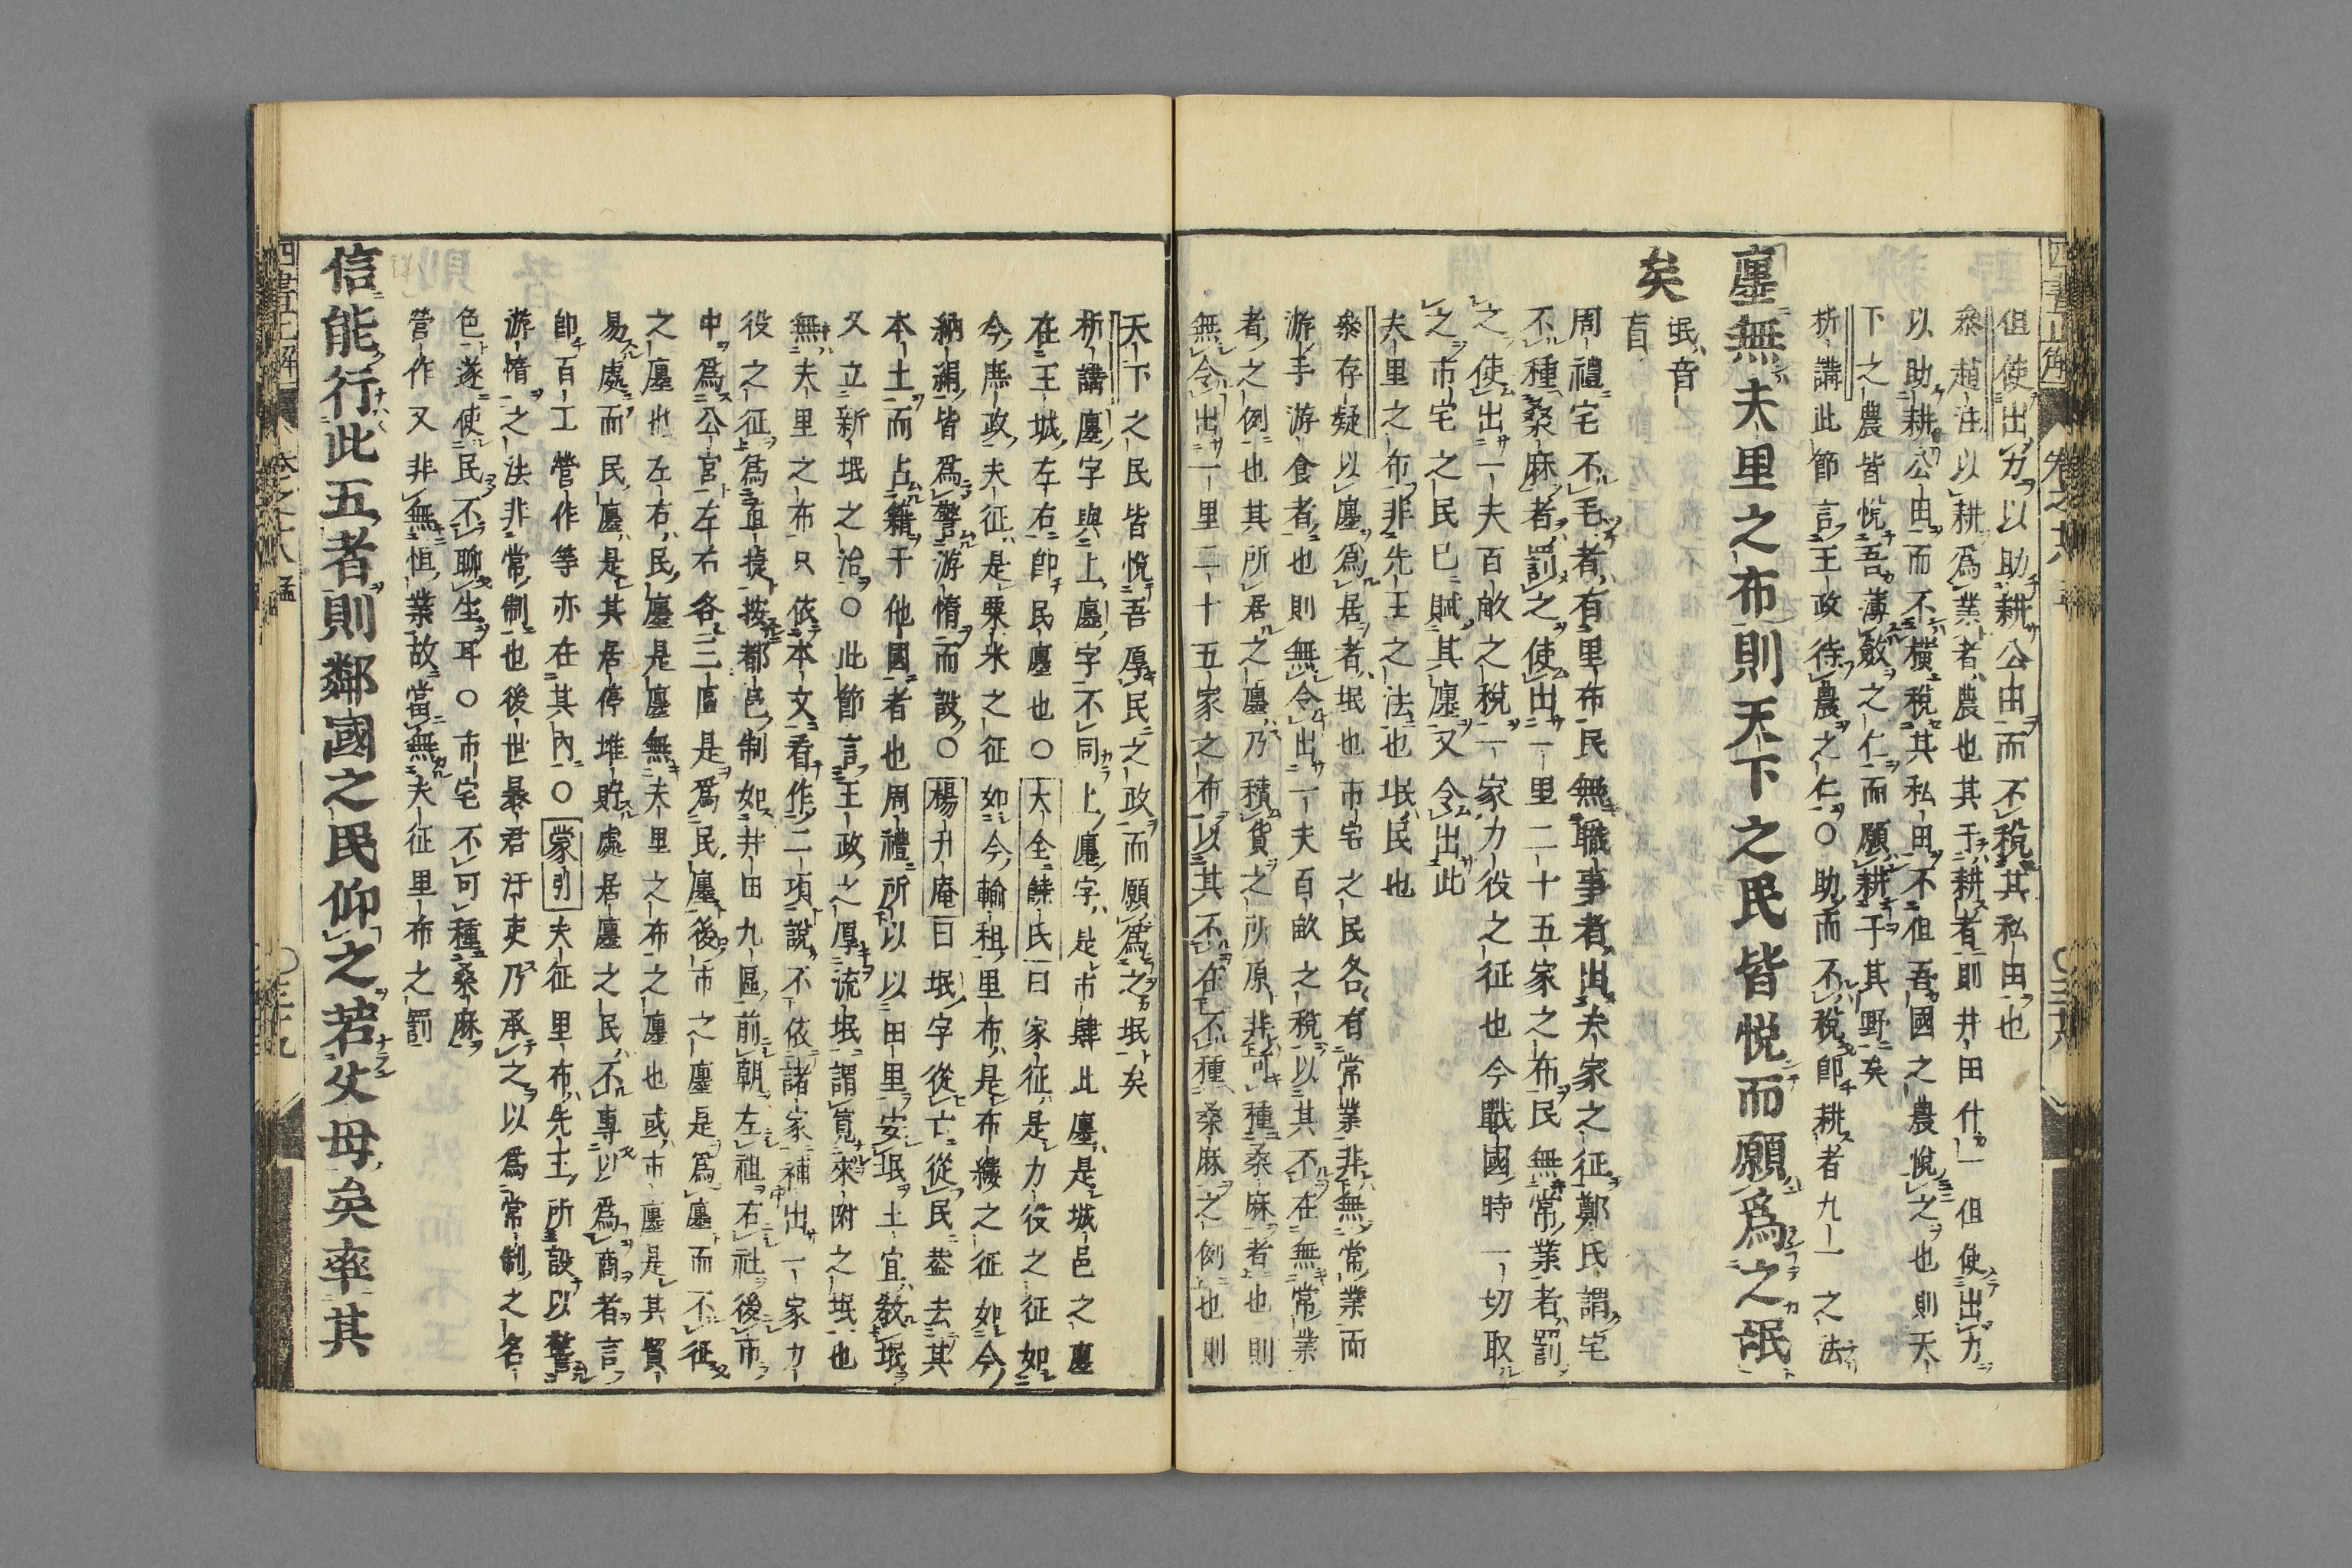 但使出力以助耕公田而不稅其私田也
叅趙注以耕爲業者農也其于耕者則井田什一但使出力
以助耕公田而不橫稅其私田不但吾國之農悅之也則天
下之農皆悅吾薄斂之仁而願耕于其野矣
析講此節言王政待農之仁○助而不稅卽耕者九一之法
廛無夫里之布則天下之民皆悅而願爲之氓
矣
氓音
盲
周禮宅不毛者有里布民無職事者出夫家之征鄭氏謂宅
不種桑麻者罰之使出一里二十五家之布民無常業者罰
之使出一夫百畝之稅一家力役之征也今戰國時一切取
之市宅之民已賦其廛又令出此
夫里之布非先王之法也氓民也
叅存疑以廛爲居者氓也市宅之民各有常業非無常業而
游手游食者也則無令出一夫百畝之稅以其不在無常業
者之例也其所居之廛乃積貨之所原非可種桑麻者也則
無令出一里二十五家之布以其不在不種桑麻之例也則
天下之民皆悅吾厚民之政而願爲之氓矣
析講廛字與上廛字不同上廛字是市肆此廛是城邑之廛
在王城左右卽民廛也○大全饒氏曰家征是力役之征如
今庶政夫征是粟米之征如今輸租里布是布縷之征如今
納絹皆爲警游惰而設○楊升庵曰氓字從亡從民蓋去其
本土而占籍于他國者也周禮所以以田里安氓土宜敎氓
又立新氓之治○此節言王政之厚流氓謂寬來附之氓也
無夫里之布只依本文看作二項說不依諸家補出一家力
役之征爲車捷按都邑制如井田九區前朝左祖右社後市
中爲公宮左右各三區是爲民廛後市之廛是爲廛而不征
之廛也左右民廛是廛無夫里之布之廛也或市廛是其貿
易處而民廛是其居停堆貯處居廛之民不專以爲商者言
卽百工營作等亦在其內○蒙引夫征里布先王所設以警
游惰之法非常制也後世暴君汙吏乃承之以爲常制之名
色遂使民不聊生耳○市宅不可種桑麻
營作又非無恒業故當無夫征里布之罰
信能行此五者則鄰國之民仰之若父母矣率其